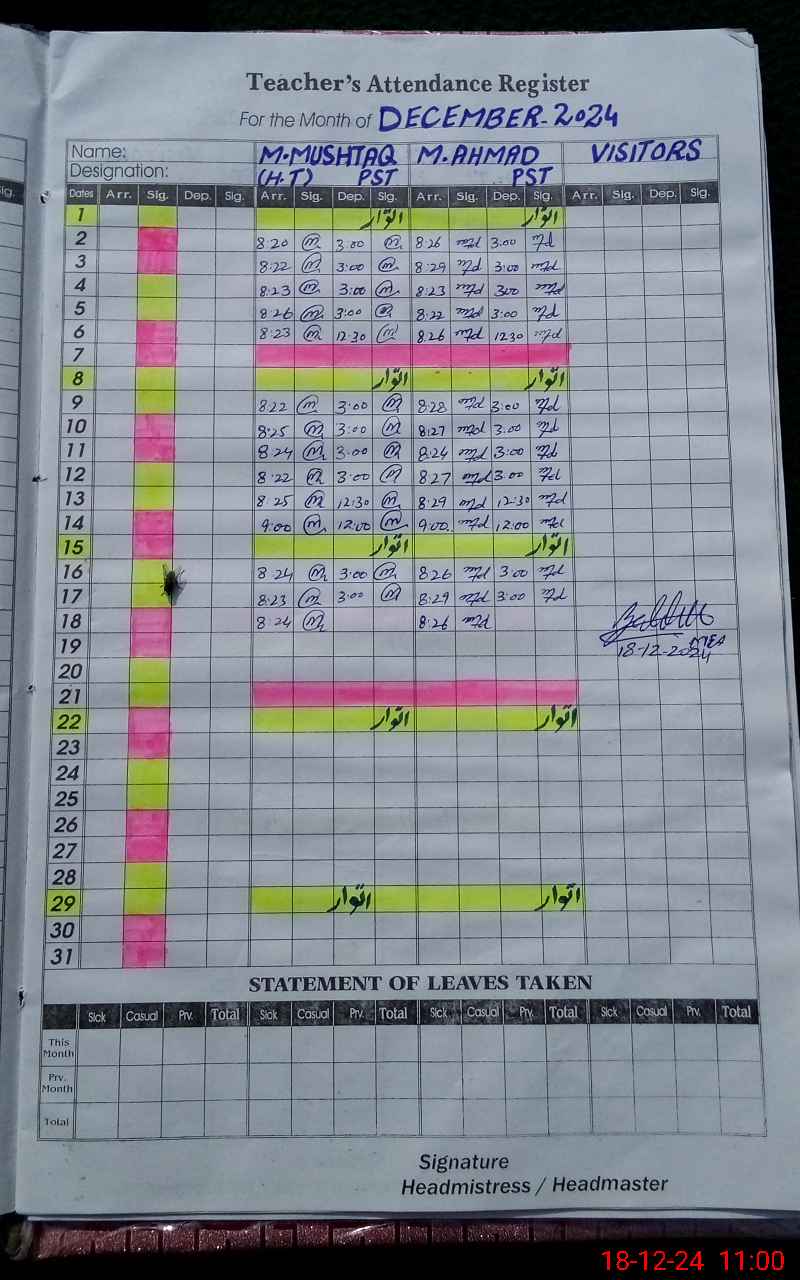 Teacher's Attendance Register
For the Month of DECEMBER-2024
Name: M.MUSHTAQ M.AHMAD VISITORS
Designation: (H.T) PST PST
Dates Arr. Sig. Dep. Sig. Arr. Sig. Dep. Sig. Arr. Sig. Dep. Sig. Arr. Sig. Dep. Sig.
1 اتوار اتوار
2 8:20 m 3:00 m 8:26 3:00
3 8:22 m 3:00 m 8:29 3:00
4 8:23 m 3:00 m 8:23 3:00
5 8:26 m 3:00 m 8:22 3:00
6 8:23 m 12:30 m 8:26 12:30
7
8 اتوار اتوار
9 8:22 m 3:00 m 8:28 3:00
10 8:25 m 3:00 m 8:27 3:00
11 8:24 m 3:00 m 8:24 3:00
12 8:22 m 3:00 m 8:27 3:00
13 8:25 m 12:30 m 8:29 12:30
14 9:00 m 12:00 m 9:00 12:00
15 اتوار اتوار
16 8:24 m 3:00 m 8:26 3:00
17 8:23 m 3:00 m 8:29 3:00
18 8:24 m 8:26
19 18-12-2024
20
21
22 اتوار اتوار
23
24
25
26
27
28
29 اتوار اتوار
30
31
STATEMENT OF LEAVES TAKEN
Sick Casual Prv. Total Sick Casual Prv. Total Sick Casual Prv. Total Sick Casual Prv. Total
This Month
Prv. Month
Total
Signature
Headmistress / Headmaster
18-12-24 11:00